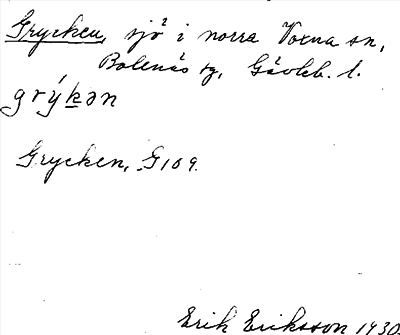 Grycken, sjö i norra Voxna sn,
Bolenäs sg, Gävleb. l.
grýkən
Grycken, G109.
Erik Eriksson 1930.